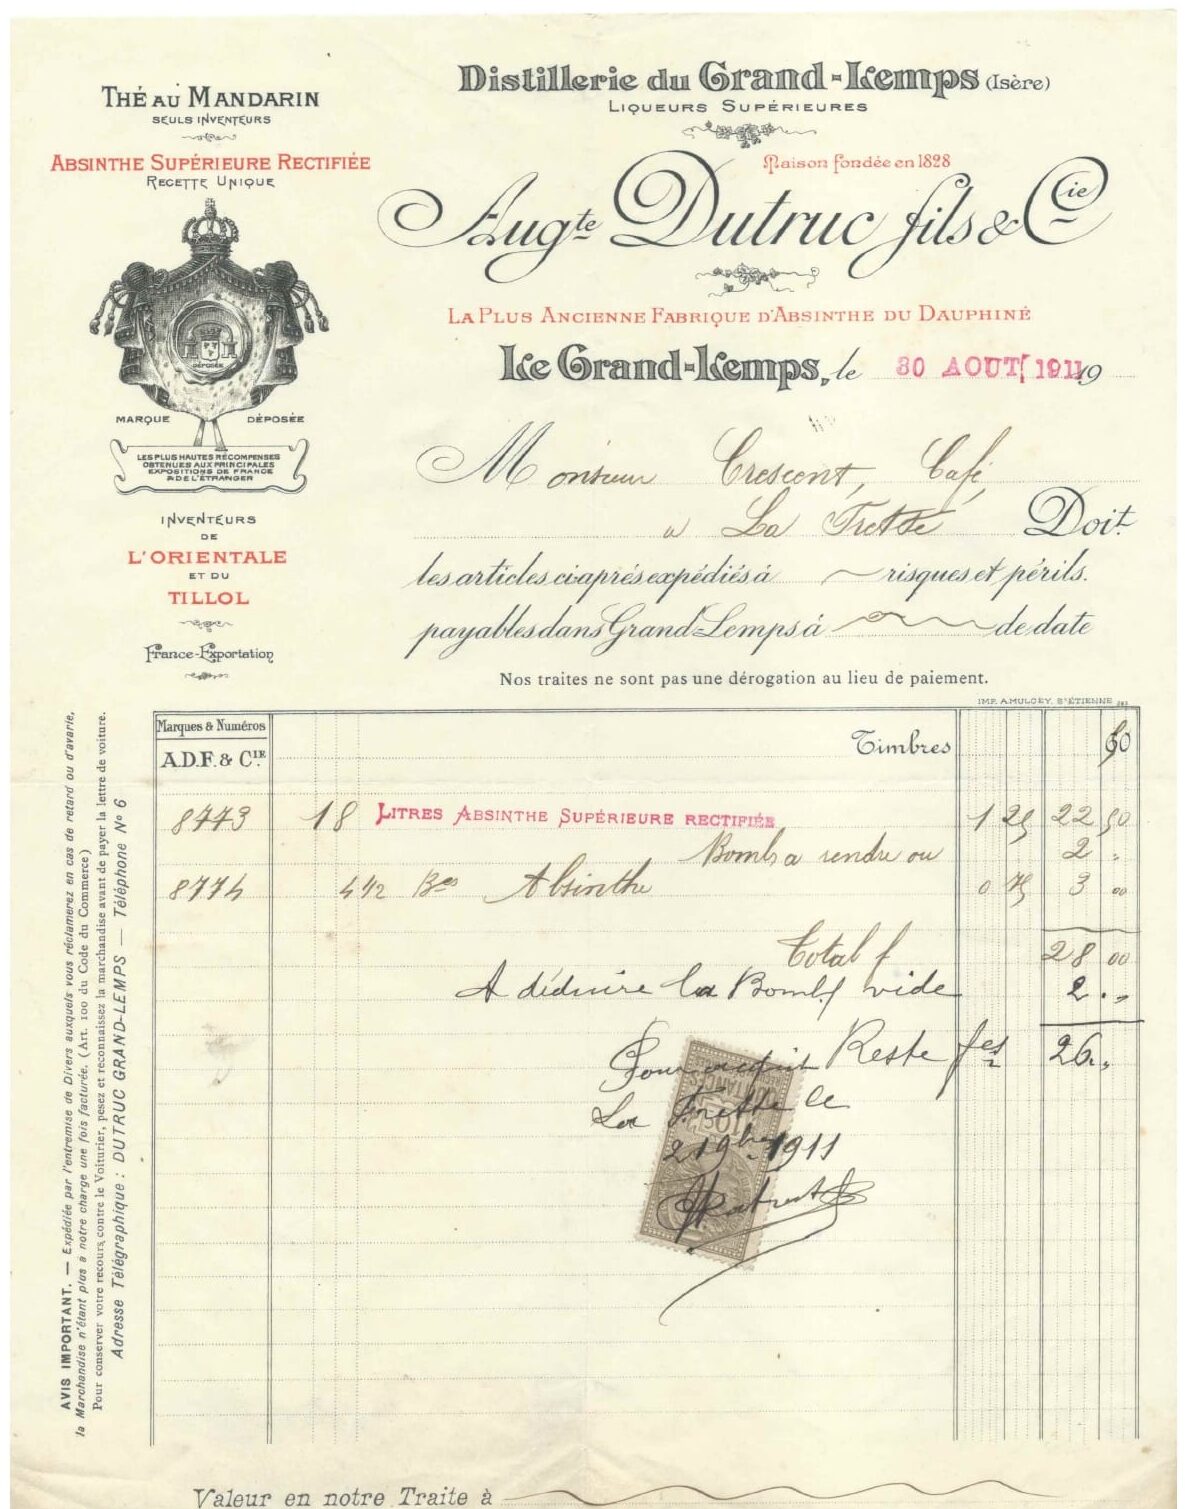 Thé au Mandarin
Seuls Inventeurs
Absinthe Supérieure Rectifiée
Recette Unique
DÉPOSÉE
MARQUE DÉPOSÉE
LES PLUS HAUTES RÉCOMPENSES
OBTENUES AUX PRINCIPALES
EXPOSITIONS DE FRANCE
& DE L'ÉTRANGER
INVENTEURS
DE
L'ORIENTALE
ET DU
TILLOL
France-Exportation
Distillerie du Grand-Lemps (Isère)
Liqueurs Supérieures
Maison fondée en 1828
Augte Dutruc fils & Cie
La Plus Ancienne Fabrique d'Absinthe du Dauphiné
Le Grand-Lemps, le 30 AOUT 1911 19
Monsieur Crescent, Café,
a La Frette Doit
les articles ci-après expédiés à risques et périls.
payables dans Grand-Lemps à de date
Nos traites ne sont pas une dérogation au lieu de paiement.
IMP. A. MULCEY, St ÉTIENNE
Marques & Numéros
A.D.F. & Cie
Timbres 50
8773 18 Litres Absinthe Supérieure rectifiée 1 25 22 50
Bomb a rendre ou 2 "
8774 4 1/2 Bes Absinthe 0 75 3 00
Total f 28 00
A déduire la Bomb vide 2 . "
Reste fcs 26 . "
Pour acquit
La Frette le
2 19bre 1911
AVIS IMPORTANT. — Expédiée par l'entremise de Divers auxquels vous réclamerez en cas de retard ou d'avarie,
la Marchandise n'étant plus à notre charge une fois facturée. (Art. 100 du Code du Commerce)
Pour conserver votre recours contre le Voiturier, pesez et reconnaissez la marchandise avant de payer la lettre de voiture.
Adresse Télégraphique : DUTRUC GRAND-LEMPS — Téléphone No 6
Valeur en notre Traite à